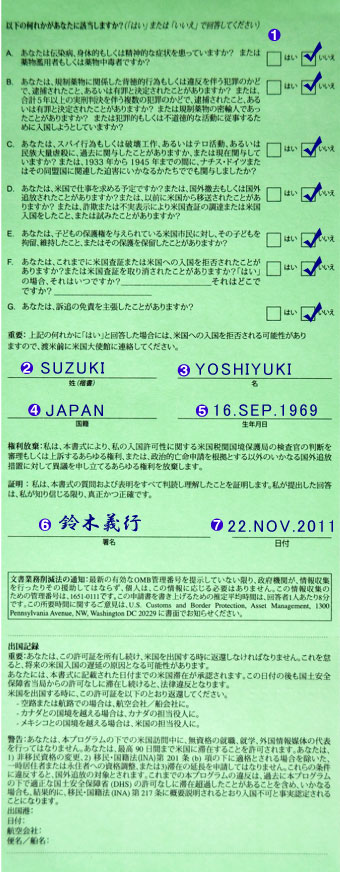 以下の何れかがあなたに該当しますか?(「はい」または「いいえ」で回答してください)
①
A. あなたは伝染病、身体的もしくは精神的な症状を患っていますか? または
薬物濫用者もしくは薬物中毒者ですか?
はい いいえ
B. あなたは、規制薬物に関係した背徳的行為もしくは違反を伴う犯罪のかど
で、逮捕されたこと、あるいは有罪と決定されたことがありますか? または、
合計5年以上の実刑判決を伴う複数の犯罪のかどで、逮捕されたこと、ある
いは有罪と決定されたことがありますか? または規制薬物の密輸人であっ
たことがありますか? または犯罪的もしくは不道徳的な活動に従事するた
めに入国しようとしていますか?
はい いいえ
C. あなたは、スパイ行為もしくは破壊工作、あるいはテロ活動、あるいは
民族大量虐殺に、過去に関与したことがありますか、または現在関与して
いますか? または、1933 年から 1945 年までの間に、ナチス・ドイツまたは
その同盟国に関連した迫害にいかなるかたちででも関与しましたか?
はい いいえ
D. あなたは、米国で仕事を求める予定ですか? または、国外撤去もしくは国外
追放されたことがありますか? または、以前に米国から移送されたことがあ
りますか? または、詐欺または不実表示により米国査証の調達または米国
入国をしたこと、または試みたことがありますか?
はい いいえ
E. あなたは、子どもの保護権を与えられている米国市民に対し、その子どもを
拘留、維持したこと、またはその保護を保留したことがありますか?
はい いいえ
F. あなたは、これまでに米国査証または米国への入国を拒否されたことが
ありますか?または米国査証を取り消されたことがありますか?「はい」
の場合、それはいつですか? それはどこで
ですか?
はい いいえ
G. あなたは、訴追の免責を主張したことがありますか?
はい いいえ
重要: 上記の何れかに「はい」と回答した場合には、米国への入国を拒否される可能性があり
ますので、渡米前に米国大使館に連絡してください。
② SUZUKI ③ YOSHIYUKI
姓(楷書) 名
④ JAPAN ⑤ 16.SEP.1969
国籍 生年月日
権利放棄: 私は、本書式により、私の入国許可性に関する米国税関国境保護局の検査官の判断を
審理もしくは上訴するあらゆる権利、または、政治的亡命申請を根拠とする以外のいかなる国外追放
措置に対して異議を申し立てるあらゆる権利を放棄します。
証明: 私は、本書式の質問および表明をすべて判読し理解したことを証明します。私が提出した回答
は、私が知り信じる限り、真正かつ正確です。
⑥ 鈴木義行 ⑦ 22.NOV.2011
署名 日付
文書業務削減法の通知: 最新の有効なOMB管理番号を提示していない限り、政府機関が、情報収集
を行ったりその援助してはならず、個人は、この情報に応じる必要はありません。この情報収集
のための管理番号は、1651-0111です。この申請書を書き上げるための推定平均時間は、回答者1人あたり8分
です。この所要時間に関するご意見は、U.S. Customs and Border Protection, Asset Management, 1300
Pennsylvania Avenue, NW, Washington DC 20229 に書面でお知らせください。
出国記録
重要: あなたは、この許可証を所有し続け、米国を出国する時に返還しなければなりません。これを怠
ると、将来の米国入国の遅延の原因となる可能性があります。
あなたには、本書式に記載された日付までの米国滞在が承認されます。この日付の後も国土安全
保障省当局からの許可なしに滞在し続けると、法律違反となります。
米国を出国する時に、この許可証を以下のとおり返還してください。
- 空路または航路での場合は、航空会社/船会社に。
- カナダとの国境を越える場合は、カナダの担当役人に。
- メキシコとの国境を越える場合は、米国の担当役人に。
警告: あなたは、本プログラムの下での米国訪問中に、無資格の就職、就学、外国情報媒体の代表
を行ってはなりません。あなたは、最高 90 日間まで米国に滞在することを許可されます。あなたは、
1) 非移民資格の変更、2) 移民・国籍法(INA)第 201 条 (b) 項の下に適格とされる場合を除いた、
一時居住者または永住者への資格調整、または3)滞在の延長を申請してはなりません。これらの条件
に違反すると、国外追放の対象とされます。これまでの本プログラムの違反は、過去に本プログラム
の下で適正な国土安全保障省 (DHS) の許可なしに滞在超過したことがあることを含め、いかなる
場合も、結果的に、移民・国籍法(INA)第 217 条に概要説明されるとおり入国不可と事実認定される
ことになります。
出国港:
日付:
航空会社:
便名/船名: